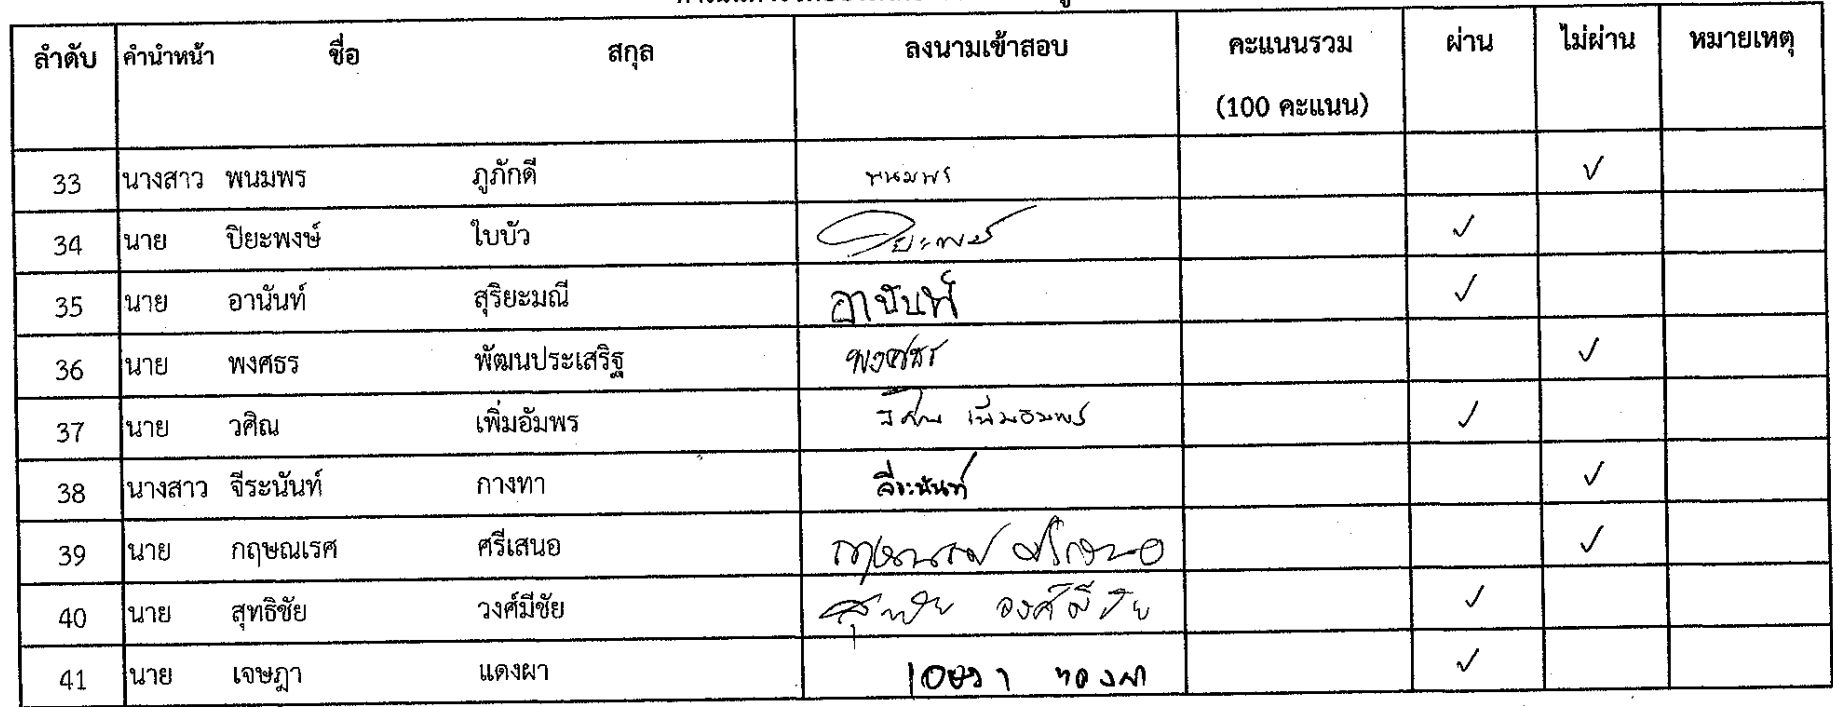 ลำดับ คำนำหน้า ชื่อ สกุล ลงนามเข้าสอบ คะแนนรวม ผ่าน ไม่ผ่าน หมายเหตุ
(100 คะแนน)
33 นางสาว พนมพร ภูภักดี พนมพร ✓
34 นาย ปิยะพงษ์ ใบบัว ปิยะพงษ์ ✓
35 นาย อานันท์ สุริยะมณี อานันท์ ✓
36 นาย พงศธร พัฒนประเสริฐ พงศธร ✓
37 นาย วศิณ เพิ่มอัมพร วศิณ เพิ่มอัมพร ✓
38 นางสาว จีระนันท์ กางทา จีระนันท์ ✓
39 นาย กฤษณเรศ ศรีเสนอ กฤษณเรศ ศรีเสนอ ✓
40 นาย สุทธิชัย วงศ์มีชัย สุทธิชัย วงศ์มีชัย ✓
41 นาย เจษฎา แดงผา เจษฎา แดงผา ✓